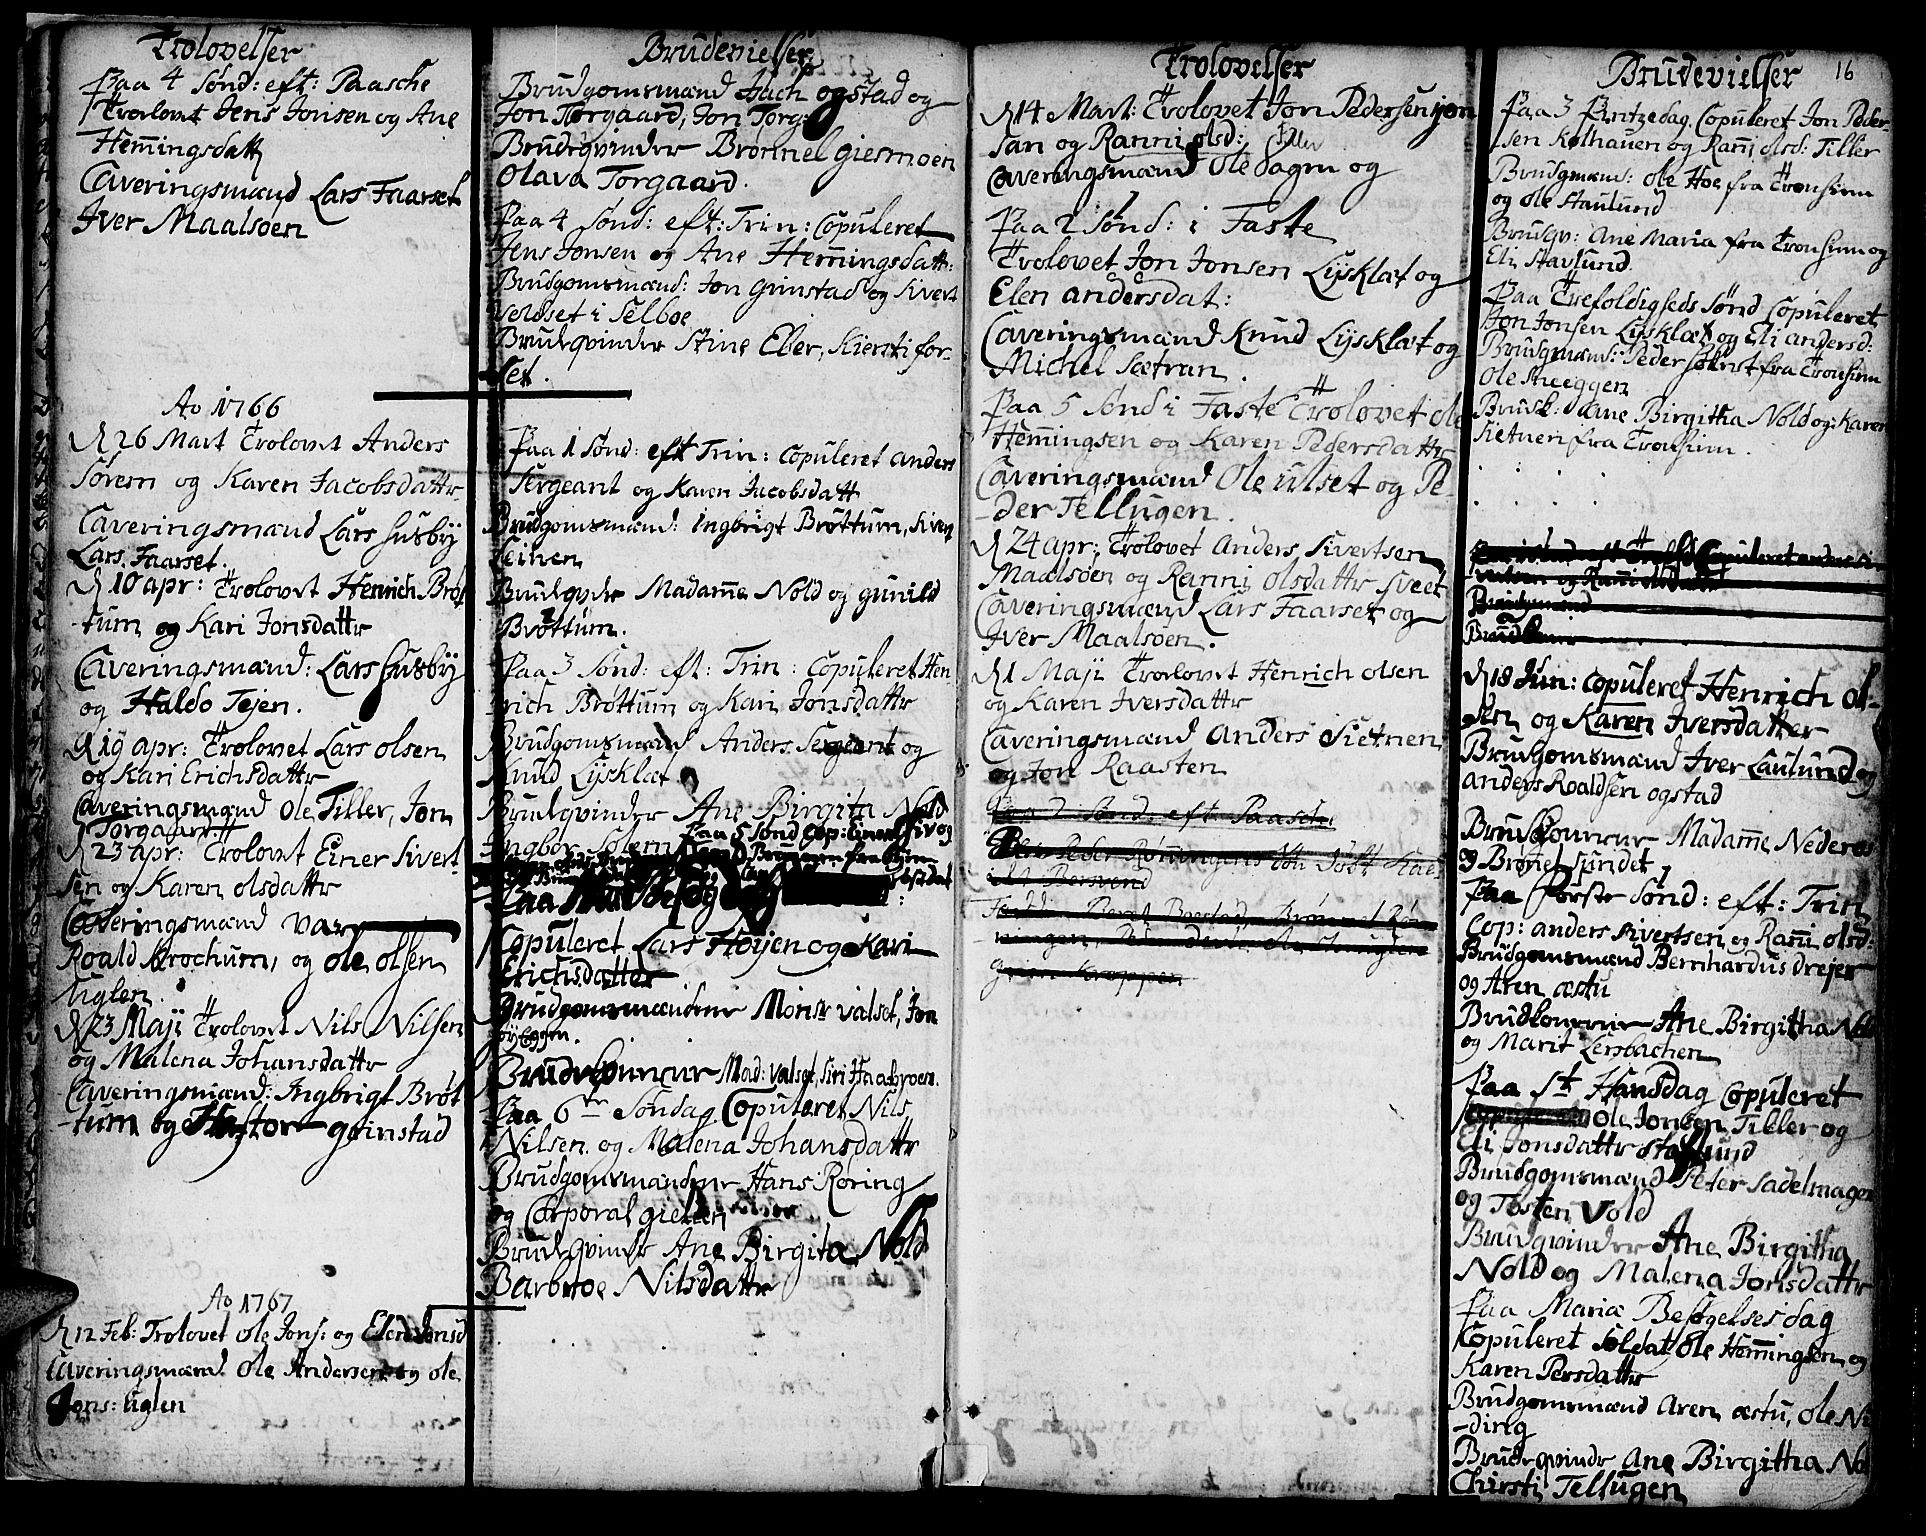 Trolovelser
Paa 4 Sønd: eft: Paasche
Trolovet Jens Jonsen og Ane
Hemingsdatt
Caveringsmænd Lars Faarset
Iver Maalsøen
Ao 1766
D 26 Mart Trolovet Anders
Sørem og Karen Jacobsdattr
Caveringsmænd Lars Husby
Lars Faarset.
D 10 apr: Trolovet Henrich Brøt
-tum og Kari Jonsdattr
Caveringsmænd: Lars Husby
og Haldo Tejen.
D 19 apr: Trolovet Lars olsen
og Kari Erichsdattr
Caveringsmænd Ole Tiller, Jon
Torgaard
D 23 apr: Trolovet Einer Sivert
sen og Karen olsdattr
Caveringsmænd var
Roald Brochum, og ole olsen
Uglen.
D 23 Maji Trolovet Nils Nilsen
og Malena Johansdattr
Caveringsmænd: Ingbrigt Brøt
-tum og Hastor grinstad
Ao 1767
D 12 Feb: Trolovet Ole Jons: og Elen Jonsd
Caveringsmænd Ole Andersen og ole
Jons: Uglen
Brudevielser
Brudgomsmænd Hach ogstad og
Jon Torgaard, Jon Torg:
Brudeqvinder Brønnel giesmoen
Olava Torgaard.
Paa 4 Sønd: eft: Trin: Copuleret
Jens Jonsen og Ane Hemingsdatt:
Brudgomsmænd: Jon Grinstad og Sivert
Veldset i Selboe
Brudeqvinder Stine Eber, Kiersti for-
set.
Paa 1 Sønd: eft Trin: Copuleret anders
Sergeant og Karen Jacobsdatt
Brudgomsmænd: Ingbrigt Brøttum, Siver
Leinen
Brudeqvdr Madame Nold og gunild
Brøttum.
Paa 3 Sønd: eft: Trin: Copuleret Hen-
rich Brøttum og Kari Jonsdattr
Brudgomsmænd Anders Sergeant og
Knud Lysklæt
Brudeqvinder Ane Birgita Nold
Ingbor Solem Paa 5 Sønd Cop: Einer Siv og
Paa
Copuleret Lars Høyen og Kari
Erichsdatter
Brudgomsmændene Monsr valset, Jon
Brudekonerne Mad: valset, Siri Haabroen.
Paa 6te Søndag Copuleret Nils
Nilsen og Malena Johansdattr
Brudgomsmændene Hans Røring
og Corporal
Brudeqvinder Ane Birgita Nold
Barbroe Nilsdattr
Trolovelser
D 14 Mart: Trolovet Jon Pedersen jon
San og Ranni olsd: Tiller
Caveringsmænd Ole dagm og
Paa 2 Sønd: i Faste
Trolovet Jon Jonsen Lysklæt og
Elen andersdat:
Caveringsmænd Knud Lysklæt og
Michel Sætran.
Paa 5 Sønd i Faste Trolovet ole
Hemingsen og Karen Pedersdattr
Caveringsmænd Ole Ulset og Pe-
-der Tellugen.
D 24 apr: Trolovet Anders Sivertsen
Maalsøen og Ranni Olsdattr Sveet
Caveringsmænd Lars Faarset og
Iver Maalsøen.
D 1 Maji Trolovet Henrich olsen
og Karen Iversdattr
Caveringsmænd Anders Sietnen
og Jon Raasten
Paa 2 Sønd: eft Paasche
Brudevielser 16
Paa 3 Pintzedag Copuleret Jon Peder-
sen Kolhauen og Rani olsd: Tiller
Brudgmæn: Ole Hoe fra Tronhiem
og Ole Stavlund
Brudqv: Ane Maria fra Tronhiem og
Eli Stavlund.
Paa Trefoldigheds Sønd Copuleret
Jon Jonsen Lysklæt og Eli andersd:
Brudgmænd: Peder Holmst fra Tronhiem
Ole Skieggen
Brudk: Ane Birgitha Nold og Karen
Sietneri fra Tronhiem.
D 18 Jun: Copuleret Henrich ol-
sen og Karen Iversdatter
Brudgomsmænd Iver Laulund og
anders Roaldsen ogstad
Brudkonerne Madame Nederos
og Brønel spindet
Paa Første Sønd: eft: Trin
Cop: anders Sivertsen og Rani olsd:
Brudgomsmænd Bernhardus drejer
og Aren æstu
Brudkonerne Ane Birgitha Nol
og Marit Lersbachen
Paa St Hansdag Copuleret
Ole Jonsen Tiller og
Eli Jonsdattr Stavlund
Brudgomsmænd Peter Sadelmager
og Tosten Vold
Brudqvinder Ane Birgitha
Nold og Malena Jonsdattr
Paa Mariæ Besøgelses dag
Copuleret Soldat Ole Hemingsen og
Karen Persdattr
Brudgomsmænd Aren æstu, Ole Ni
-ding
Brudeqvindr Ane Birgitha No
Chirsti Tellugen